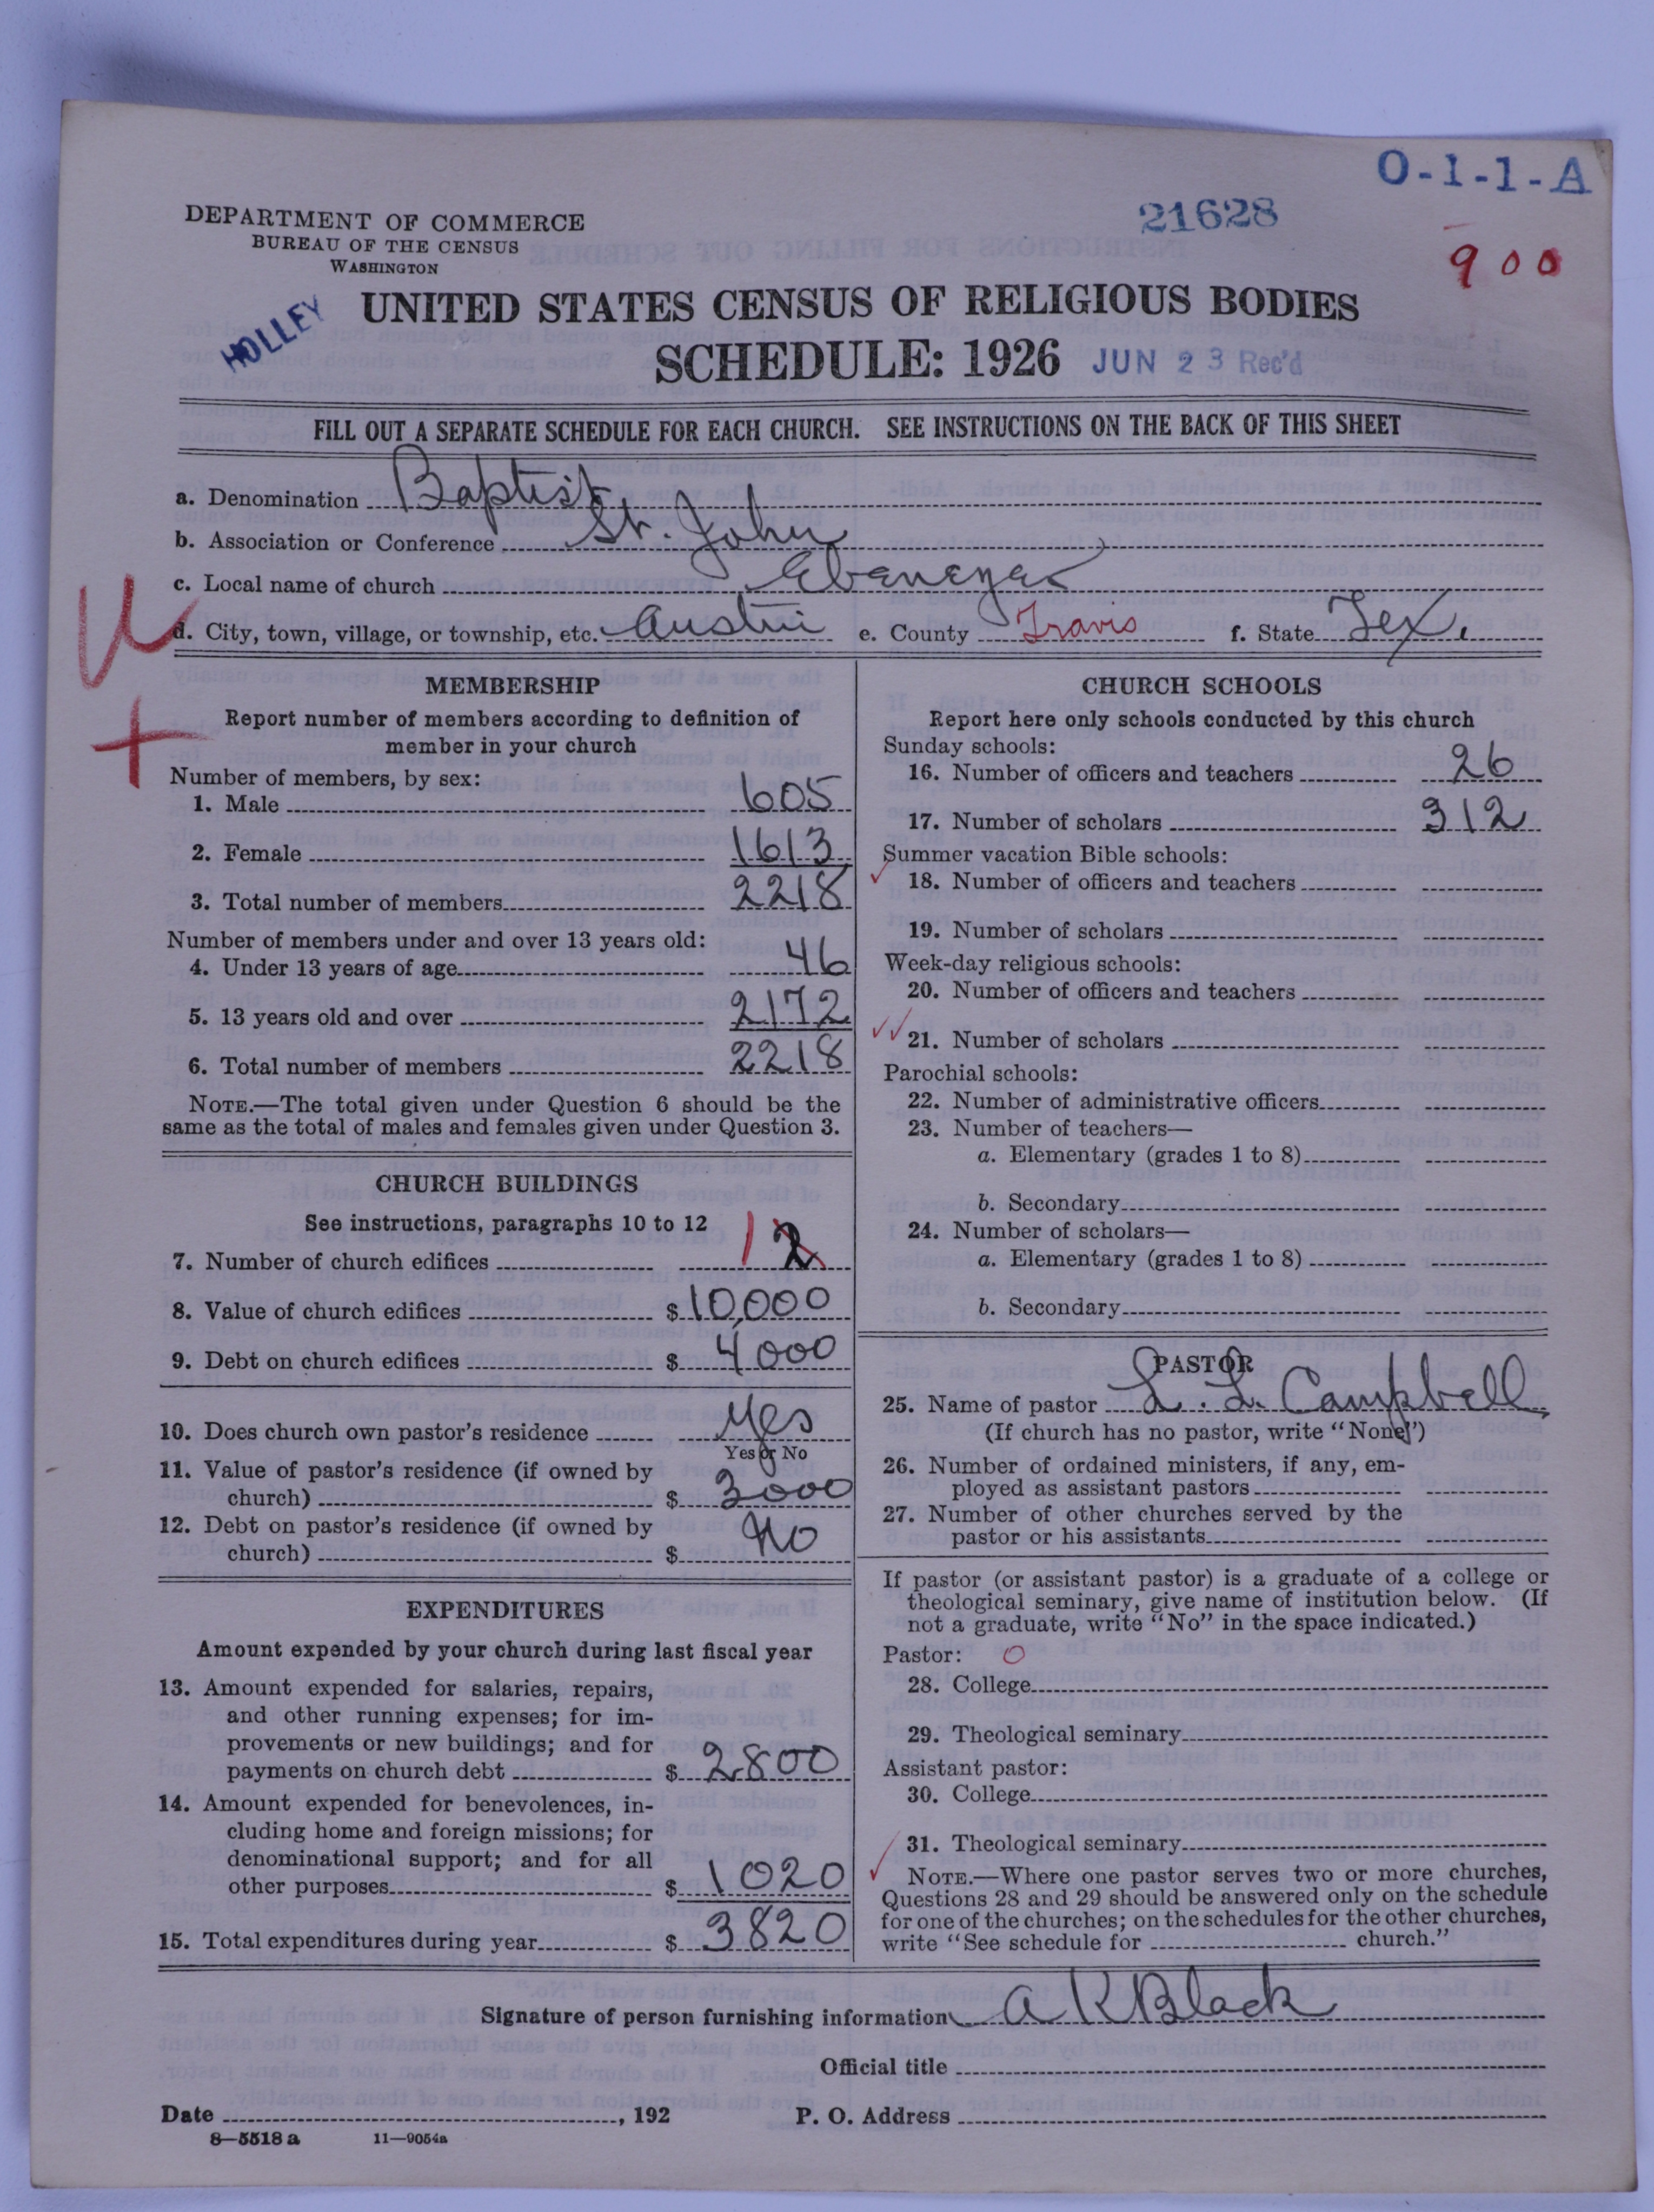 O-1-1-A
21628
900
DEPARTMENT OF COMMERCE
BUREAU OF THE CENSUS
WASHINGTON
HOLLEY
UNITED STATES CENSUS OF RELIGIOUS BODIES
SCHEDULE: 1926 JUN 23 Rec'd
FILL OUT A SEPARATE SCHEDULE FOR EACH CHURCH. SEE INSTRUCTIONS ON THE BACK OF THIS SHEET
a. Denomination Baptist
b. Association or Conference St. John
c. Local name of church Ebenezer
d. City, town, village, or township, etc. Austin e. County Travis f. State Tex.
U
+
MEMBERSHIP
Report number of members according to definition of
member in your church
Number of members, by sex:
1. Male 605
2. Female 1613
3. Total number of members 2218
Number of members under and over 13 years old:
4. Under 13 years of age 46
5. 13 years old and over 2172
6. Total number of members 2218
NOTE.—The total given under Question 6 should be the
same as the total of males and females given under Question 3.
CHURCH BUILDINGS
See instructions, paragraphs 10 to 12
7. Number of church edifices 1 2
8. Value of church edifices $10,000
9. Debt on church edifices $ 4000
10. Does church own pastor's residence Yes
Yes or No
11. Value of pastor's residence (if owned by
church) $ 3000
12. Debt on pastor's residence (if owned by
church) $ No
EXPENDITURES
Amount expended by your church during last fiscal year
13. Amount expended for salaries, repairs,
and other running expenses; for im-
provements or new buildings; and for
payments on church debt $ 2800
14. Amount expended for benevolences, in-
cluding home and foreign missions; for
denominational support; and for all
other purposes $ 1020
15. Total expenditures during year $ 3820
CHURCH SCHOOLS
Report here only schools conducted by this church
Sunday schools:
16. Number of officers and teachers 26
17. Number of scholars 312
Summer vacation Bible schools:
18. Number of officers and teachers
19. Number of scholars
Week-day religious schools:
20. Number of officers and teachers
21. Number of scholars
Parochial schools:
22. Number of administrative officers
23. Number of teachers—
a. Elementary (grades 1 to 8)
b. Secondary
24. Number of scholars—
a. Elementary (grades 1 to 8)
b. Secondary
PASTOR
25. Name of pastor L. L. Campbell
(If church has no pastor, write "None")
26. Number of ordained ministers, if any, em-
ployed as assistant pastors
27. Number of other churches served by the
pastor or his assistants
If pastor (or assistant pastor) is a graduate of a college or
theological seminary, give name of institution below. (If
not a graduate, write "No" in the space indicated.)
Pastor: O
28. College
29. Theological seminary
Assistant pastor:
30. College
31. Theological seminary
NOTE.—Where one pastor serves two or more churches,
Questions 28 and 29 should be answered only on the schedule
for one of the churches; on the schedules for the other churches,
write "See schedule for church."
Signature of person furnishing information A K Black
Official title
Date , 192 P. O. Address
8—5518 a 11—9054a